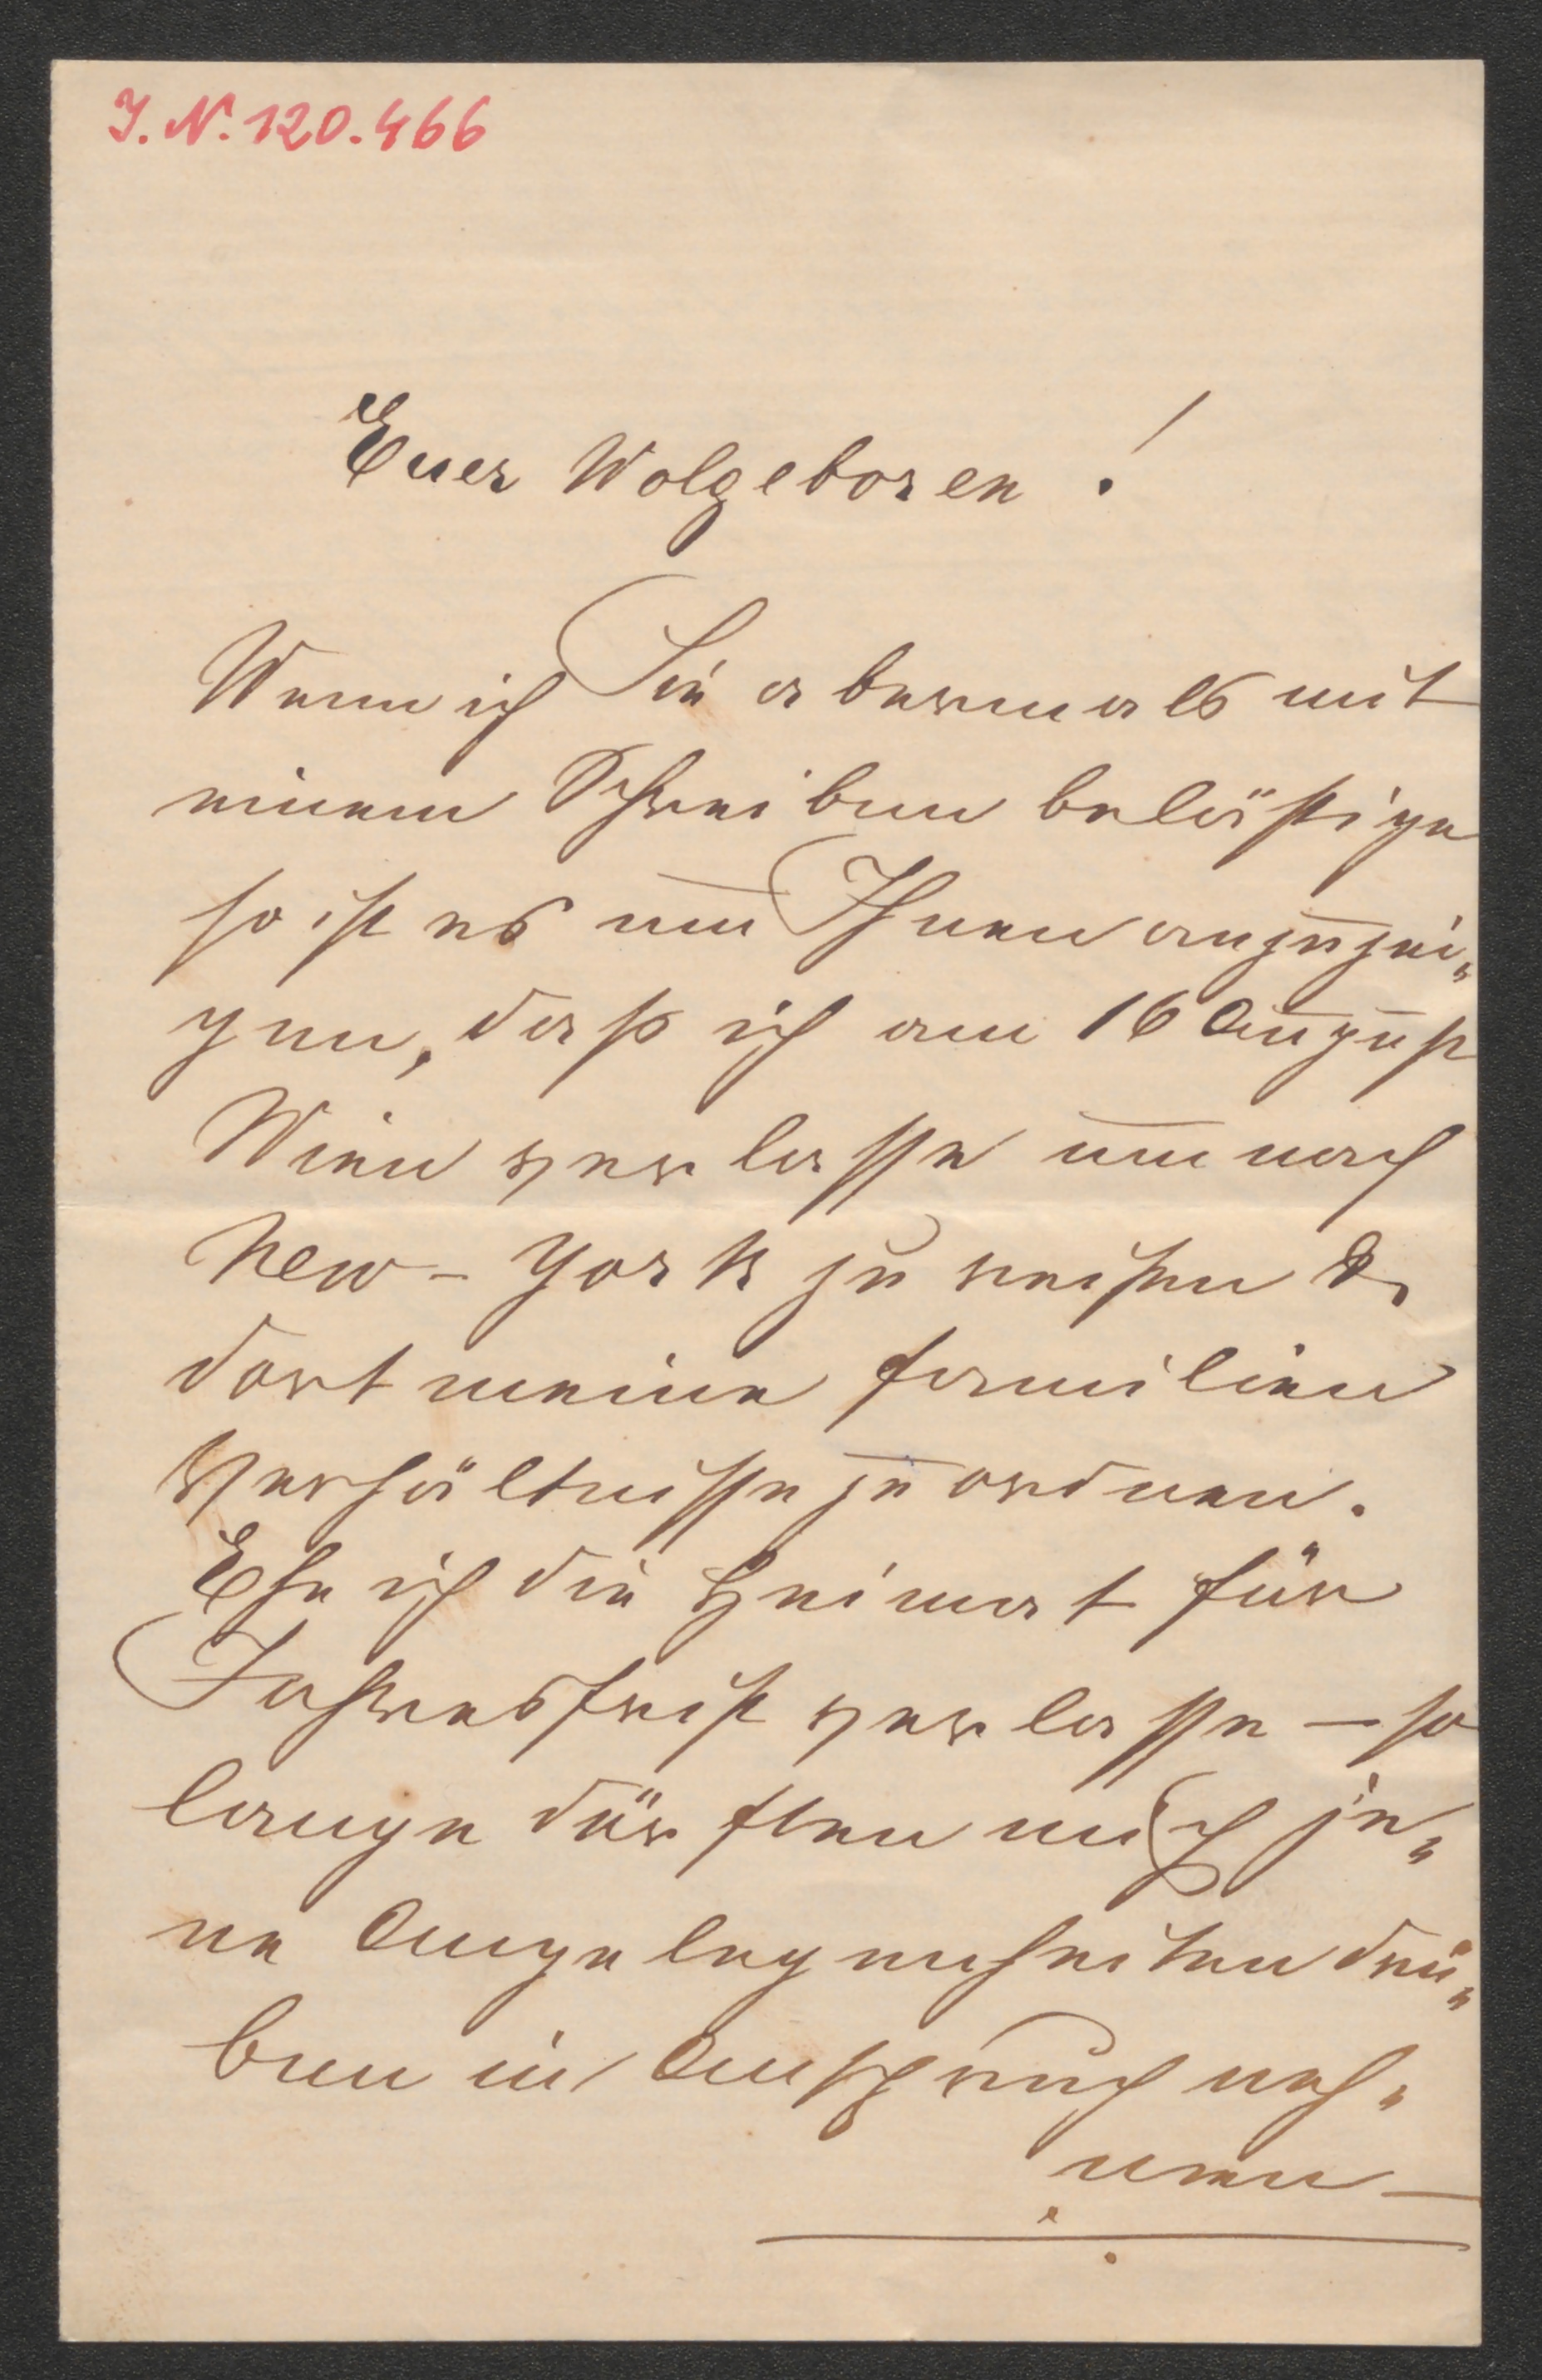 J. N. 120.466
Euer Wolgeboren !
Wenn ich Sie abermals mit
einem Schreiben belästige
so ist es um Ihnen anzuzei„
gen, daß ich am 16 August
Wien verlasse um nach
New-York zu reisen &
dort meine familien
Verhältnisse zu ordnen.
Ehe ich die Heimat für
Jahresfrist verlasse – so
lange dürften mich je„
ne Angelegenheiten drü„
ben in Anspruch neh„
men –